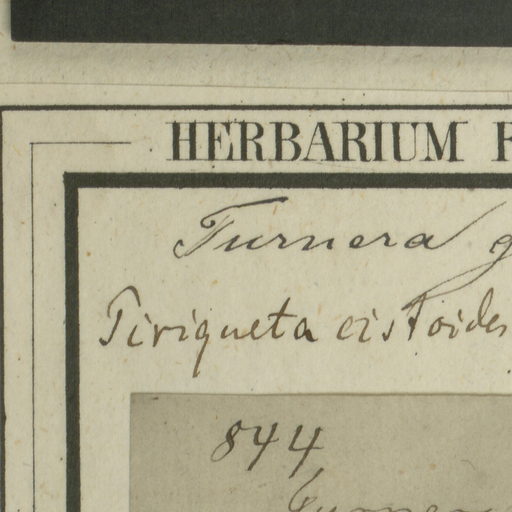 HERBARIUM
Turnera g
Piriqueta cistoides
844
Turnera